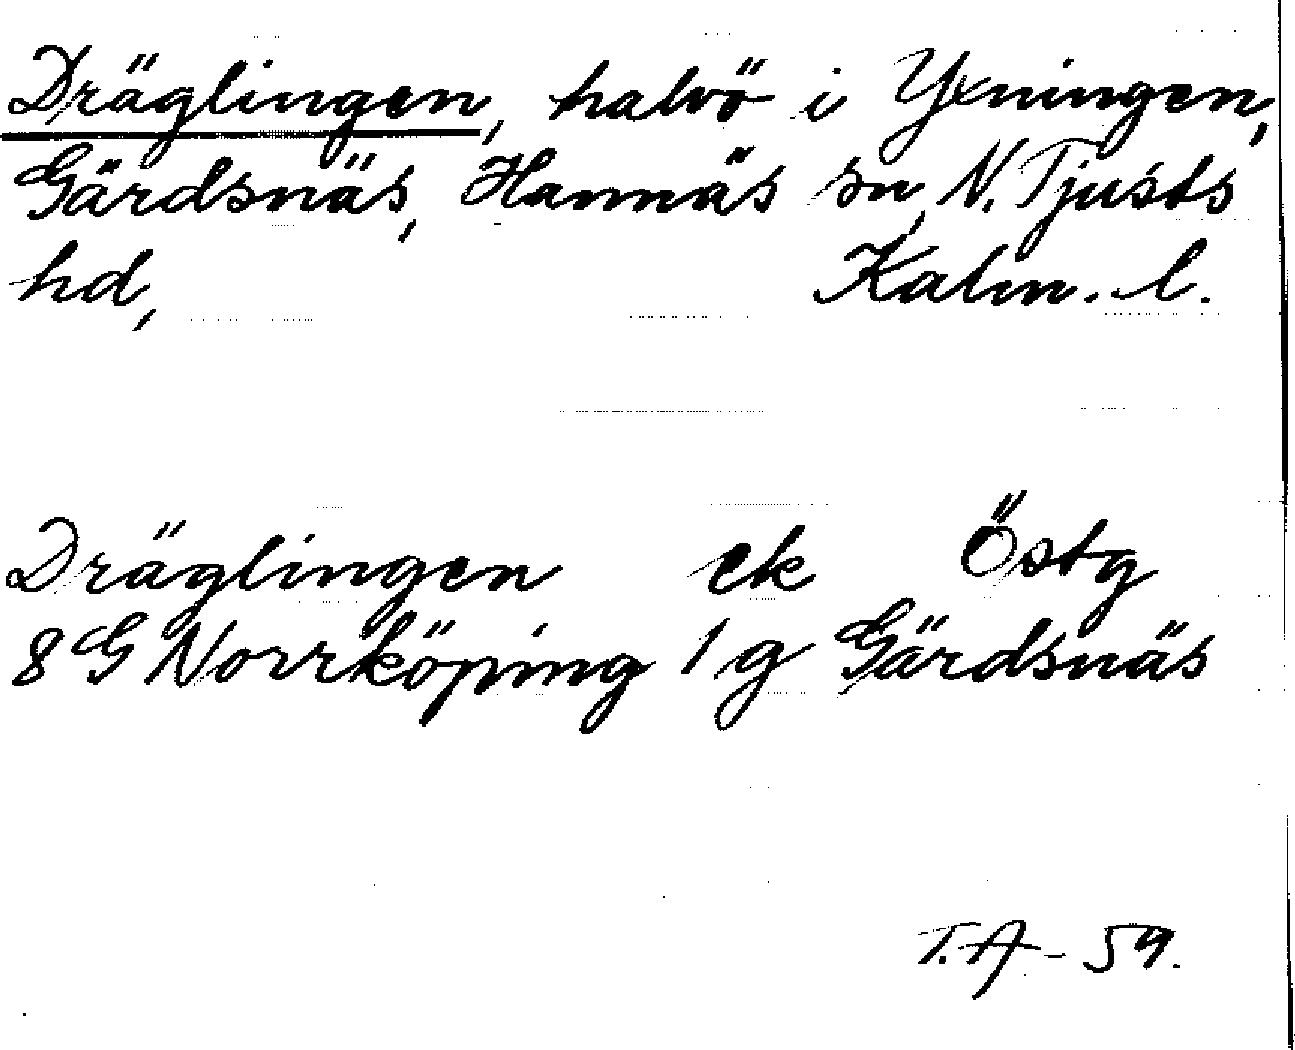 Dräglingen, halvö i Yxningen,
Gärdsnäs, Hannäs sn, N. Tjusts
hd, Kalm. l.
Dräglingen ek Östg
8 G Norrköping 1 g Gärdsnäs
T.A - 59.